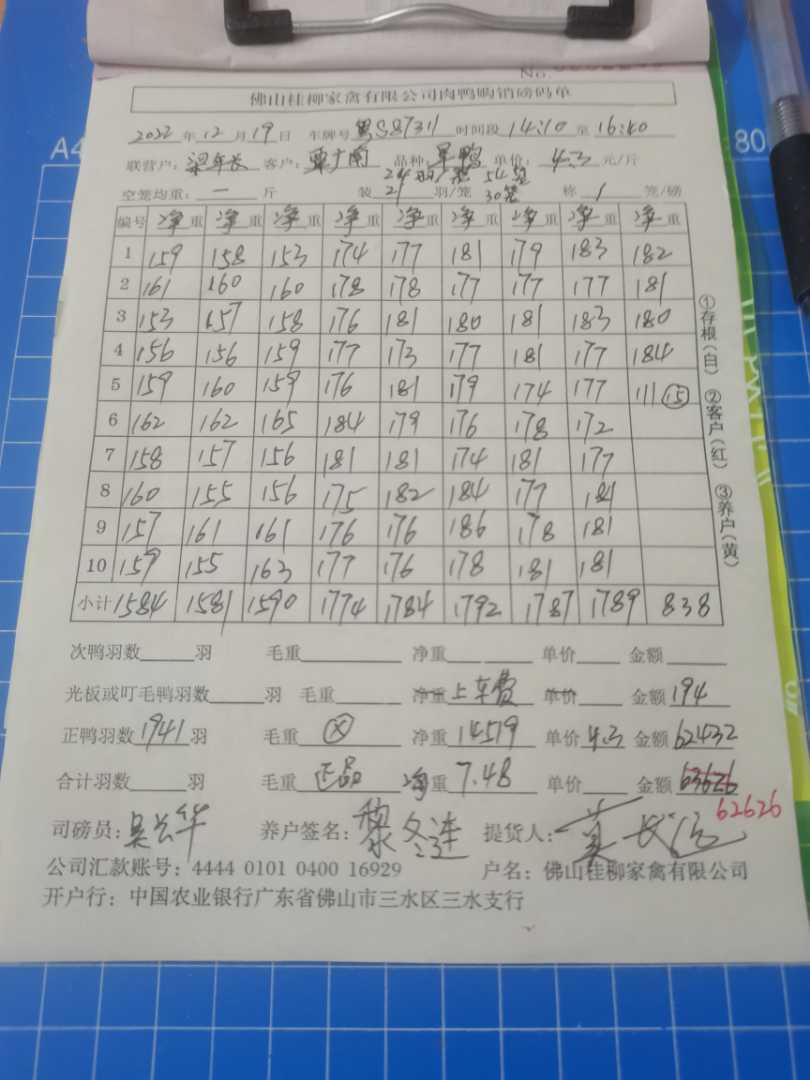 No.
佛山桂柳家禽有限公司肉鸭购销磅码单
2022年12月19日 车牌号粤S8731 时间段14:10至16:40
联营户: 梁年长 客户: 覃广南 品种 单价: 4.3元/斤
空笼均重: 一 斤 装 24 21 羽/笼 54笼 30笼 称 1 笼/磅
编号 净重 净重 净重 净重 净重 净重 净重 净重 净重
1 159 158 153 174 177 181 179 183 182
2 161 160 160 178 178 177 177 177 181
3 153 157 158 176 181 180 181 183 180
4 156 156 159 177 173 177 181 177 184
5 159 160 159 176 181 179 174 177 111 ⑮
6 162 162 165 184 179 176 178 172
7 158 157 156 181 181 174 181 177
8 160 155 156 175 182 184 177 181
9 157 161 161 176 176 186 178 181
10 159 155 163 177 176 178 181 181
小计 1584 1581 1590 1774 1784 1792 1787 1789 838
次鸭羽数 羽 毛重 净重 单价 金额
光板或叮毛鸭羽数 羽 毛重 净重 上车费 单价 金额 194
正鸭羽数 1941 羽 毛重 ⓧ 净重 14519 单价 4.3 金额 62432
合计羽数 羽 毛重 正品 净重 7.48 单价 金额 63626
62626
司磅员: 吴公华 养户签名: 黎冬连 提货人:
公司汇款账号: 4444 0101 0400 16929 户名: 佛山桂柳家禽有限公司
开户行: 中国农业银行广东省佛山市三水区三水支行
①存根(白) ②客户(红) ③养户(黄)
A4
80